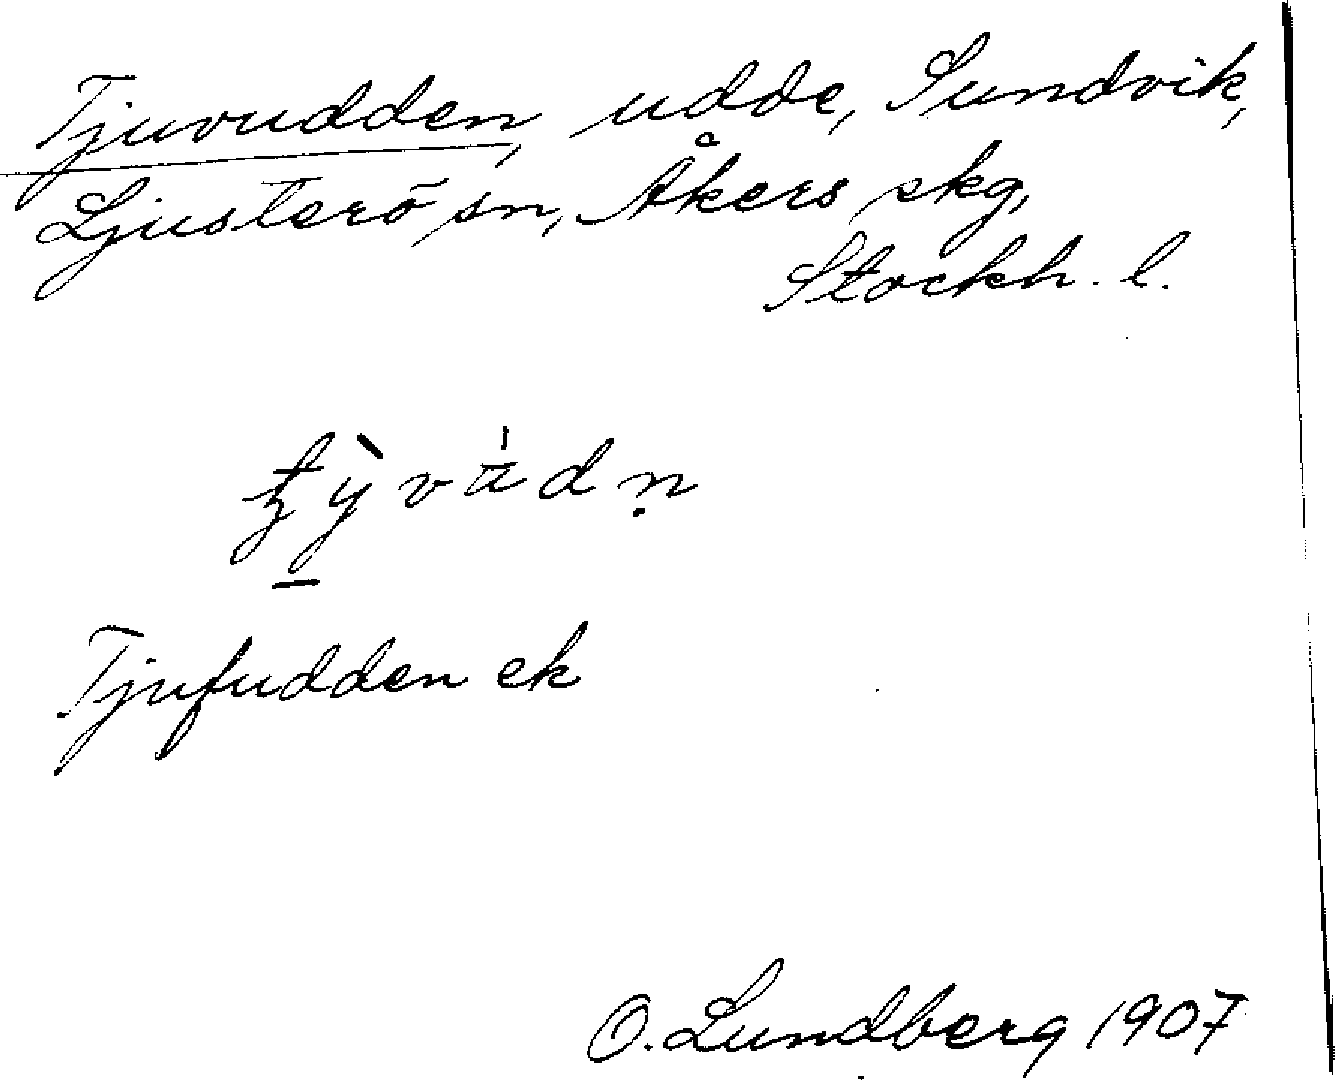 Tjuvudden, udde, Sundvik,
Ljusterö sn, Åkers skg,
Stockh. l.
Tjufudden ek
O. Lundberg 1907